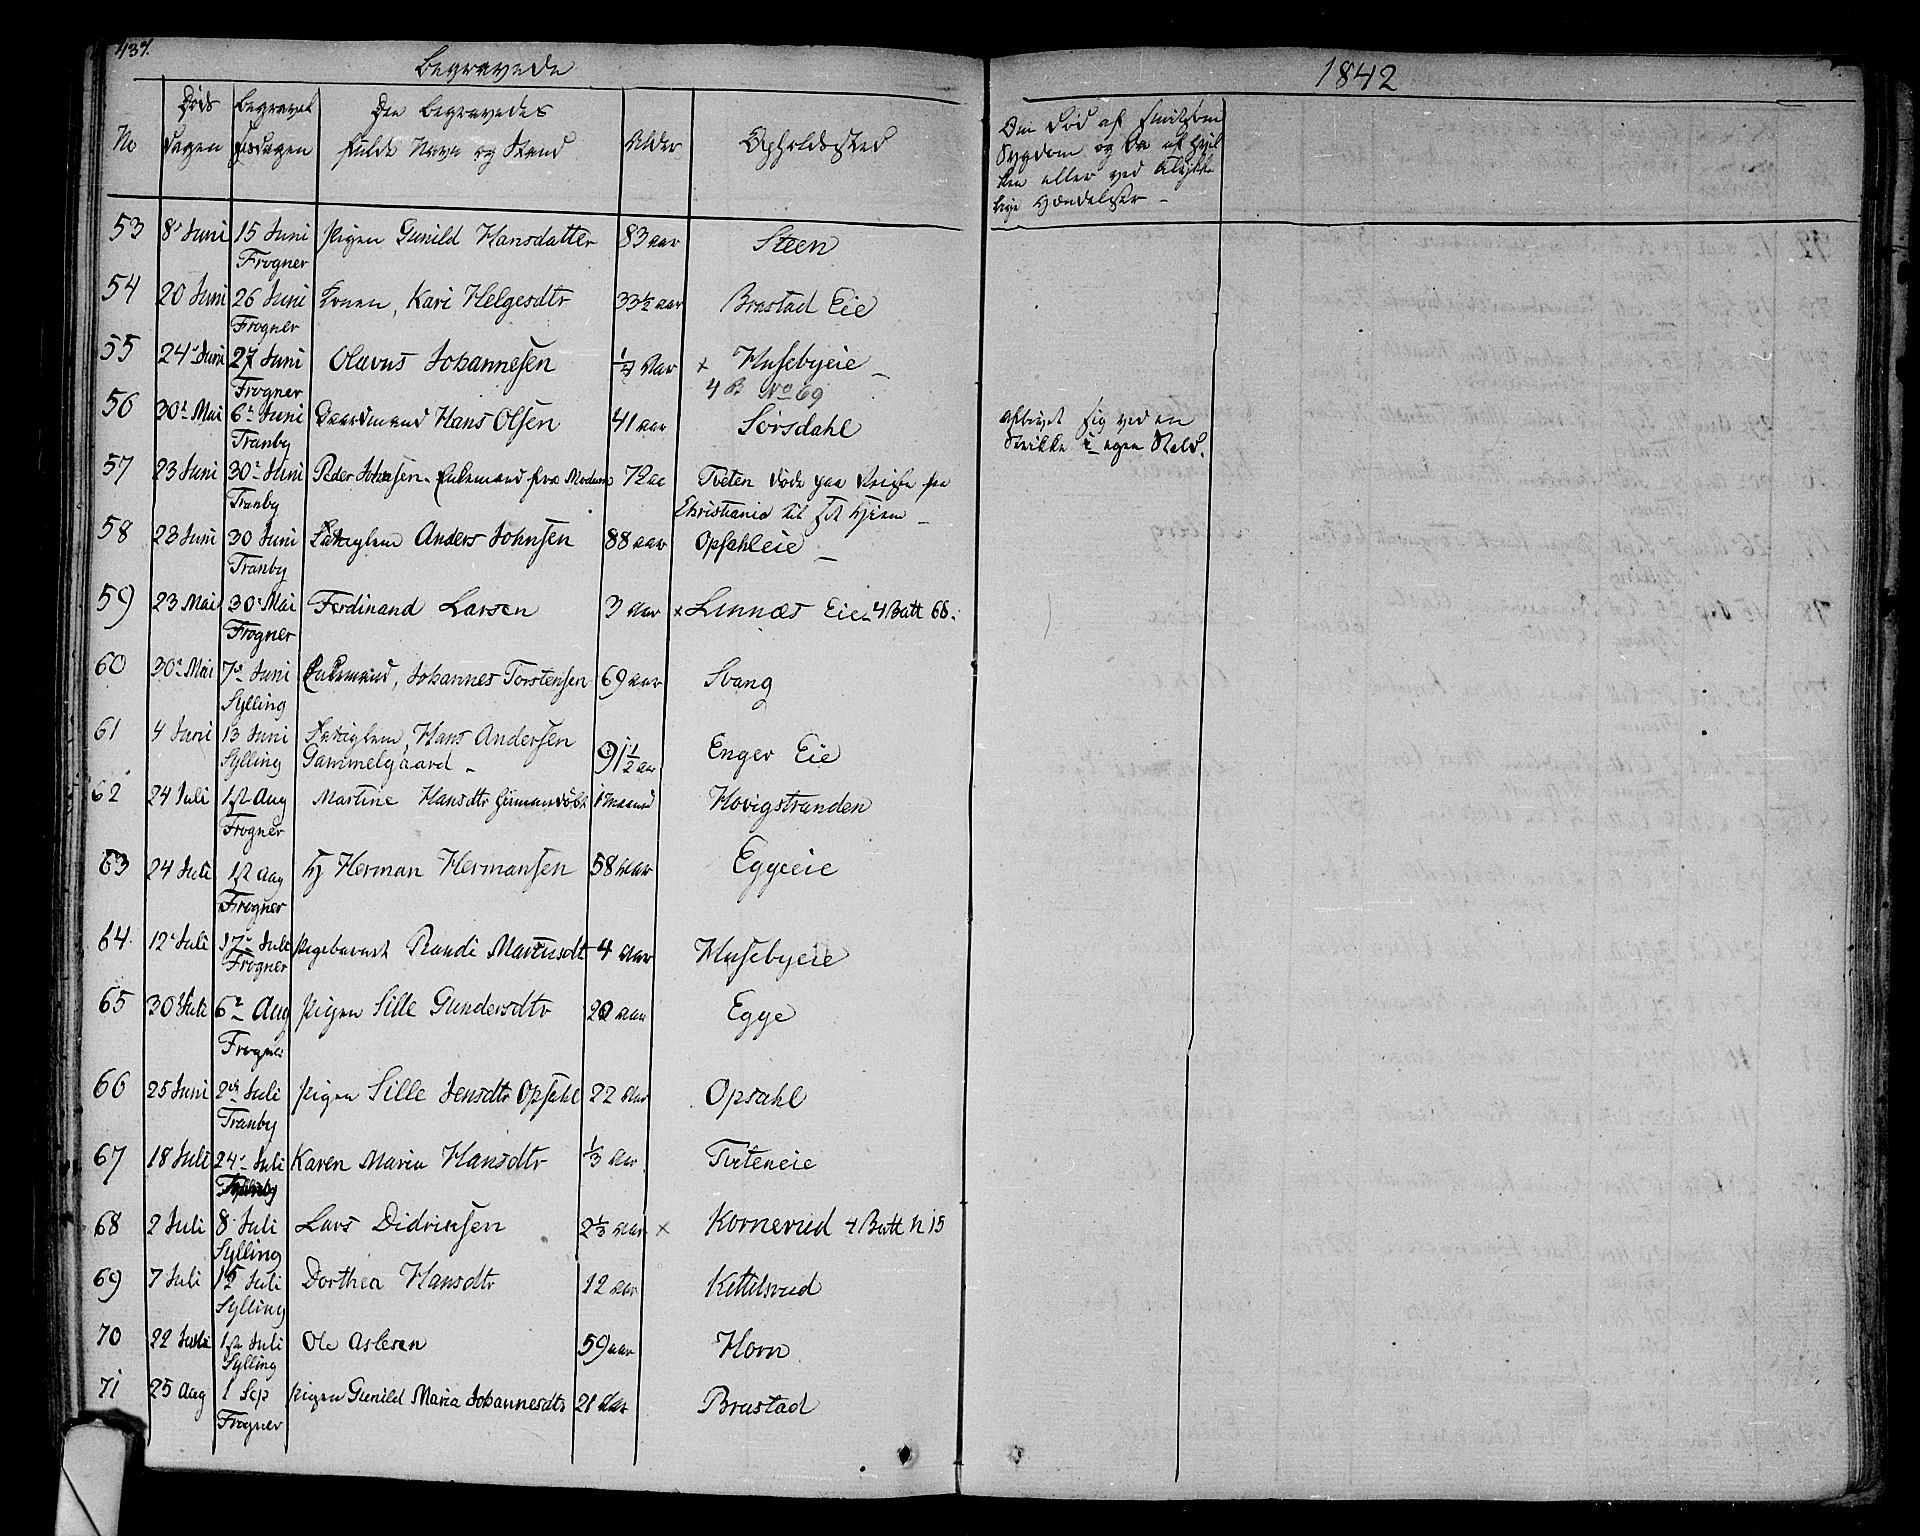 437.
Begravede
1842
No
Døds Dagen
Begravel sesdagen
Den Begravedes fulde Navn og Stand
Alder
Opholdssted
Om Død af smitsom
Sygdom og da af hvil
ken eller ved Ulykke
lige Hændelser -
53 8de Juni 15 Juni Pigen Gunild Hansdatter 83 aar Steen
Frogner
54 20 Juni 26 Juni Konen, Kari Helgesdtr 33½ aar Brastad Eie
Frogner
55 24de Juni 27 Juni Olavus Johannesen Aar × Husebyeie
Frogner 4 B No 69
56 30te Mai 6te Juni Gaardmand Hans Olsen 41 aar Sørsdahl
Tranby
aflivet sig ved en
Strikke i egen Stald.
57 23 Juni 30te Juni Peder Johnsen. Enkemand fra Modum 72 aa Tveten døde paa Reise fra
Tranby Christiania til sit Hjem
58 23 Juni 30 Juni Fattiglem Anders Johnsen 88 aar Opsahleie
Tranby
59 23 Mai 30te Mai Ferdinand Larsen 3 Aar × Linnæs Eie 4 Batt 68.
Frogner
60 30te Mai 7de Juni Enkemand, Johannes Torstensen 69 aar Svang
Sylling
61 4 Juni 13 Juni Fattiglem, Hans Andersen 91½ aar Enger Eie
Sylling Gammelgaard
62 24 Juli 1ste Aug Martine Hansdtr hiemmedøbt 1 maaned Hovigstranden
Frogner
63 24 Juli 1st Aug Herman Hermansen 58 aar Eggeeie
Frogner
64 12te Juli 17de Juli Pigebarnet Randi Martinsdt 4 Aar Husebyeie
Frogner
65 30 Juli 6te Aug Pigen Sille Gundersdtr 20 aar Egge
Frogner
66 25 Juni 2den Juli Pigen Sille Jensdtr Opsahl 22 Aar Opsahl
Tranby
67 18 Juli 24de Juli Karen Maria Hansdtr ⅓ Aar Tveteneie
68 2 Juli 8 Juli Lars Didriksen 2⅓ Aar × Kornerud 4 Batt N 15
Sylling
69 7 Juli 15 Juli Dorthea Hansdtr 12 aar Kittelsrud
Sylling
70 22 Juli 1ste Juli Ole Aslesen 59 aar Horn
Sylling
71 25 Aug 1 Sep Pigen Gunild Maria Johannesdtr 21 Aar Brastad
Frogner